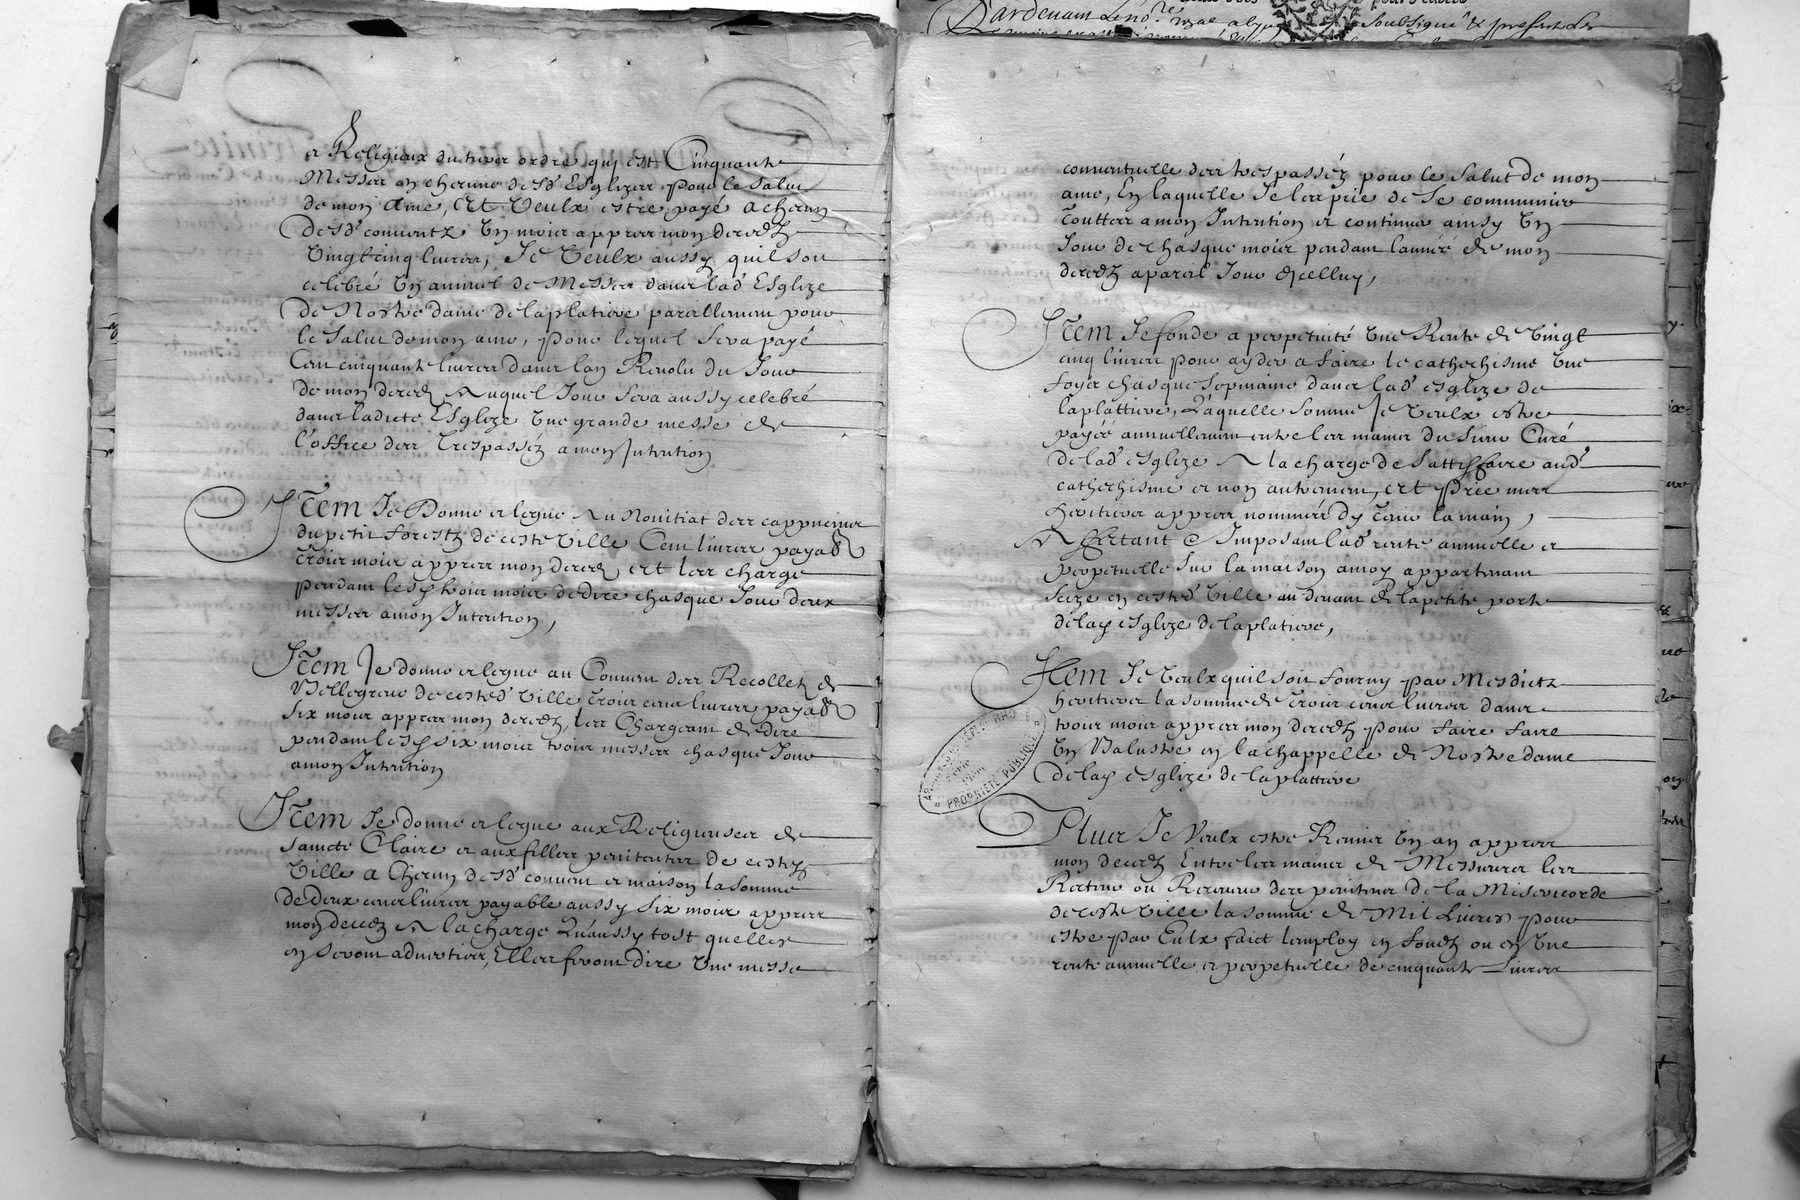 Dardenam Leno.re soubsigné & present Le
et Religieux du tiers ordre quj est Cinquante
Messes en chacune desd Esglizes pour le salut
de mon Ame, Et Veulx estre payé a chacun
Desd.t couventz Un mois appres mon decedz
Vingtcinq livres, Je Veulx aussy quil soit
celebré Un annuel de Messes dans lad Esglize
De Nostre dame de laplatiere pareillement pour
le Salut de mon ame, pour lequel sera payé
Cent cinquante livres dans lan Revolu du Jour
de mon deced, Auquel Jour sera aussy celebré
dans ladicte Esglize Une grande messe &
l'office des Trespassés a mon Intention
Item Je Donne et legue Au Novitiat des cappucins
du petit forestz de ceste Ville Cent livres payable
Trois mois appres mon deced, Et les charge
pendant lesd trois mois de dire chasque Jour deux
messes a mon Intention,
Item Je donne et legue au Convent des Recolletz de
Bellegreve de cested Ville Trois cens livres payable
six mois appres mon decedz, les Chargeant de dire
pendant lesd six mois trois messes chasque Jour
a mon Intention
Item Je donne et legue aux Religieuses de
Saincte Claire et aux filles penitentes de ceste
Ville a Chacun desd convent et maison la somme
De deux cens livres payable aussy six mois appres
mon decedz A la charge Qu'aussy tost quelles
en seront adverties, Elles feront dire Une messe
conventuelle des trespassés pour le Salut de mon
ame, En laquelle Je les prie de se communier
Touttes a mon Intention et continuer ainsy Un
Jour de chasque mois pendant lannée de mon
decedz a pareil Jour dicelluy,
Item Je fonde a perpetuité Une Rente de Vingt
cinq livres pour ayder a faire le cathechisme Une
foys chasque sepmaine dans lad esglize de
laplattiere, Laquelle somme Je Veulx estre
payéé annuellement entre les mains du sieur Curé
de lad esglize A la charge de Sattisfaire aud
cathechisme et non autrement, et Prie mes
heritiers appres nommés dy Tenir la main,
Affectant & Imposant lad rente annuelle et
perpetuelle sur la maison a moy appartenant
seize en cested Ville au devant de la petite porte
de lad esglize de laplatiere,
Item Je Veulx quil soit fourny par Mesdictz
heritiers la somme de trois cens livres dans
trois mois appres mon decedz pour faire faire
Un Balustre en la chappelle de Nostre dame
de lad esglize de la plattiere
Plus Je Veulx estre Remis Un an appres
mon decedz Entre les mains de Messieurs les
Recteurs ou Receveurs des penitens de la Misericorde
de ceste Ville la somme de Mil Livres pour
estre par Eulx faict lemploy en fondz ou en Une
rente annuelle et perpetuelle de cinquante Livres
PROPRIÉTÉ PUBLIQUE